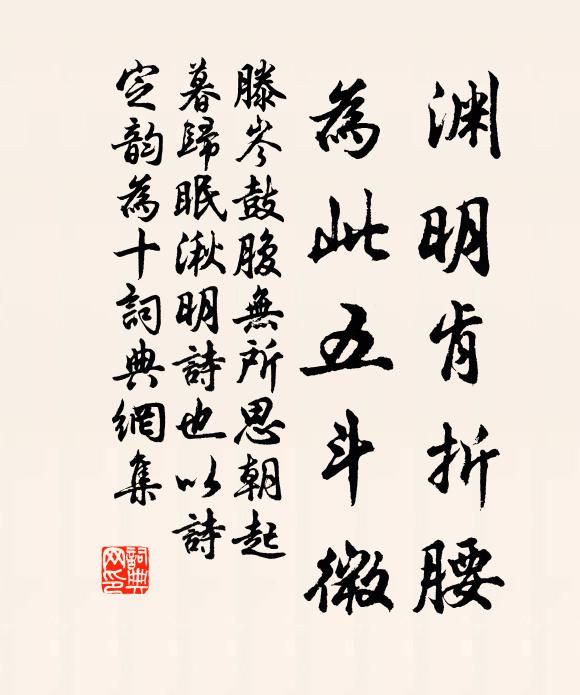 渊明肯折腰
為此五斗微
滕岑鼓腹無所思朝起
暮歸眠湫明詩也以詩
定韵為十詞典網集
詞典
网印